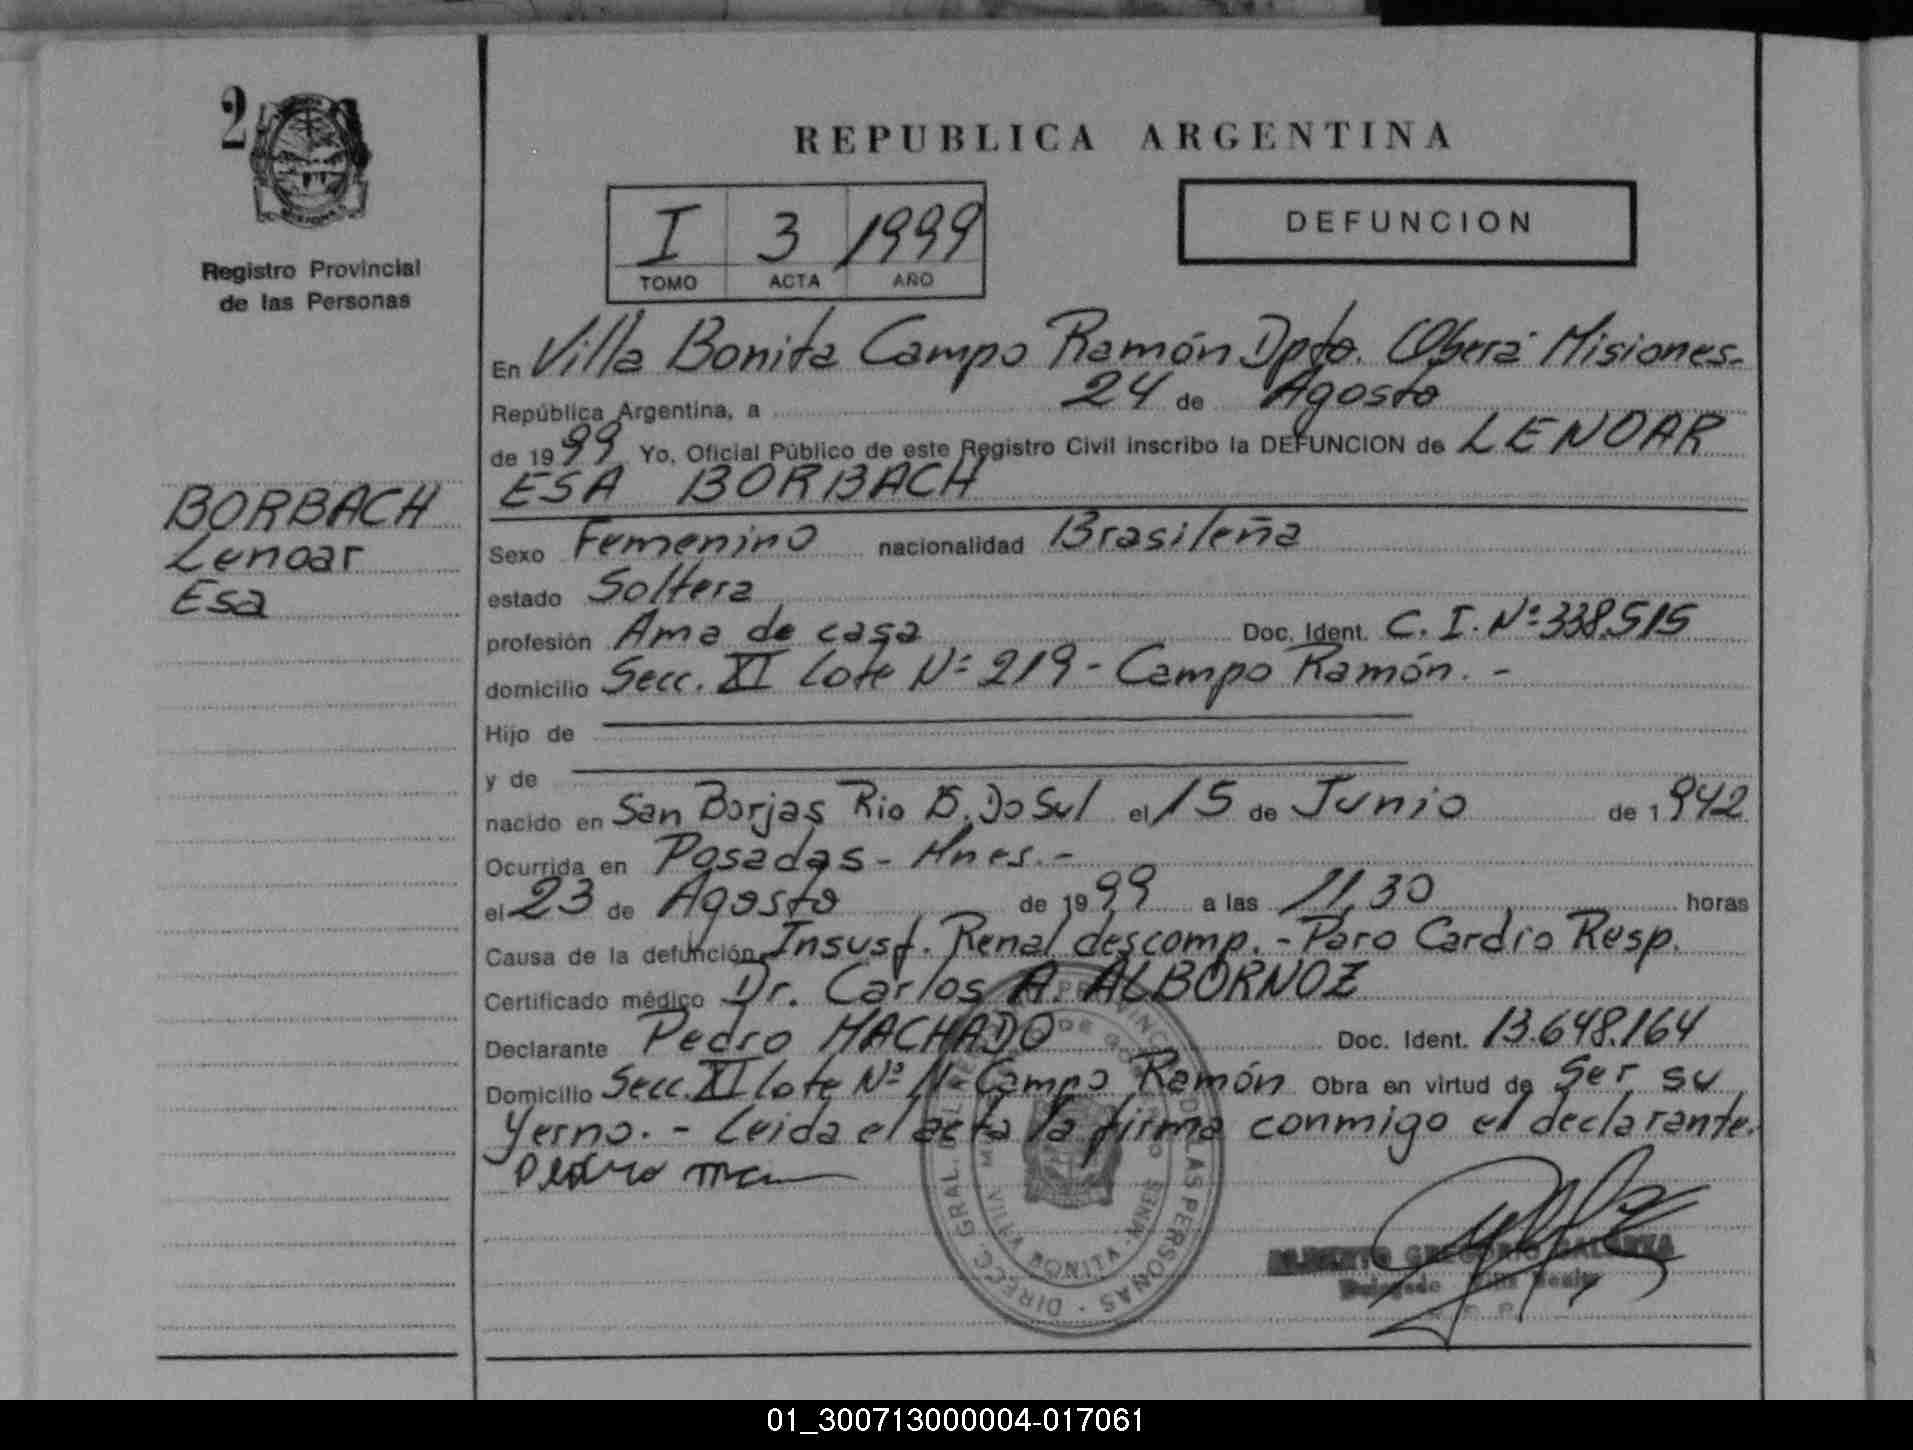 2
MISIONES
Registro Provincial
de las Personas
BORBACH
Lenoar
Esa
REPUBLICA ARGENTINA
I 3 1999
TOMO ACTA AÑO
DEFUNCION
En Villa Bonita Campo Ramón Dpto. Oberá Misiones-
República Argentina, a 24 de Agosto
de 1999 Yo, Oficial Público de este Registro Civil inscribo la DEFUNCION de LENOAR
ESA BORBACH
Sexo Femenino nacionalidad Brasileña
estado Soltera
profesión Ama de casa Doc. Ident. C. I. Nº 338.515
domicilio Secc. XI Lote Nº 219 - Campo Ramón. -
Hijo de
y de
nacido en San Borjas Rio G. Do Sul el 15 de Junio de 1942
Ocurrida en Posadas - Mnes. -
el 23 de Agosto de 1999 a las 11,30 horas
Causa de la defunción Insusf. Renal descomp. - Paro Cardio Resp.
Certificado médico Dr. Carlos A. ALBORNOZ
Declarante Pedro MACHADO Doc. Ident. 13.648.164
Domicilio Secc. XI lote Nº 11 Campo Ramón Obra en virtud de Ser su
Yerno. - Leida el acta la firma conmigo el declarante.
Pedro
DIRECC. GRAL. DEL REG. PROVINC. DE LAS PERSONAS
VILLA BONITA - MNES
GREGORIO GALARZA
Delegado Villa Bonita
R. P. P.
01_300713000004-017061